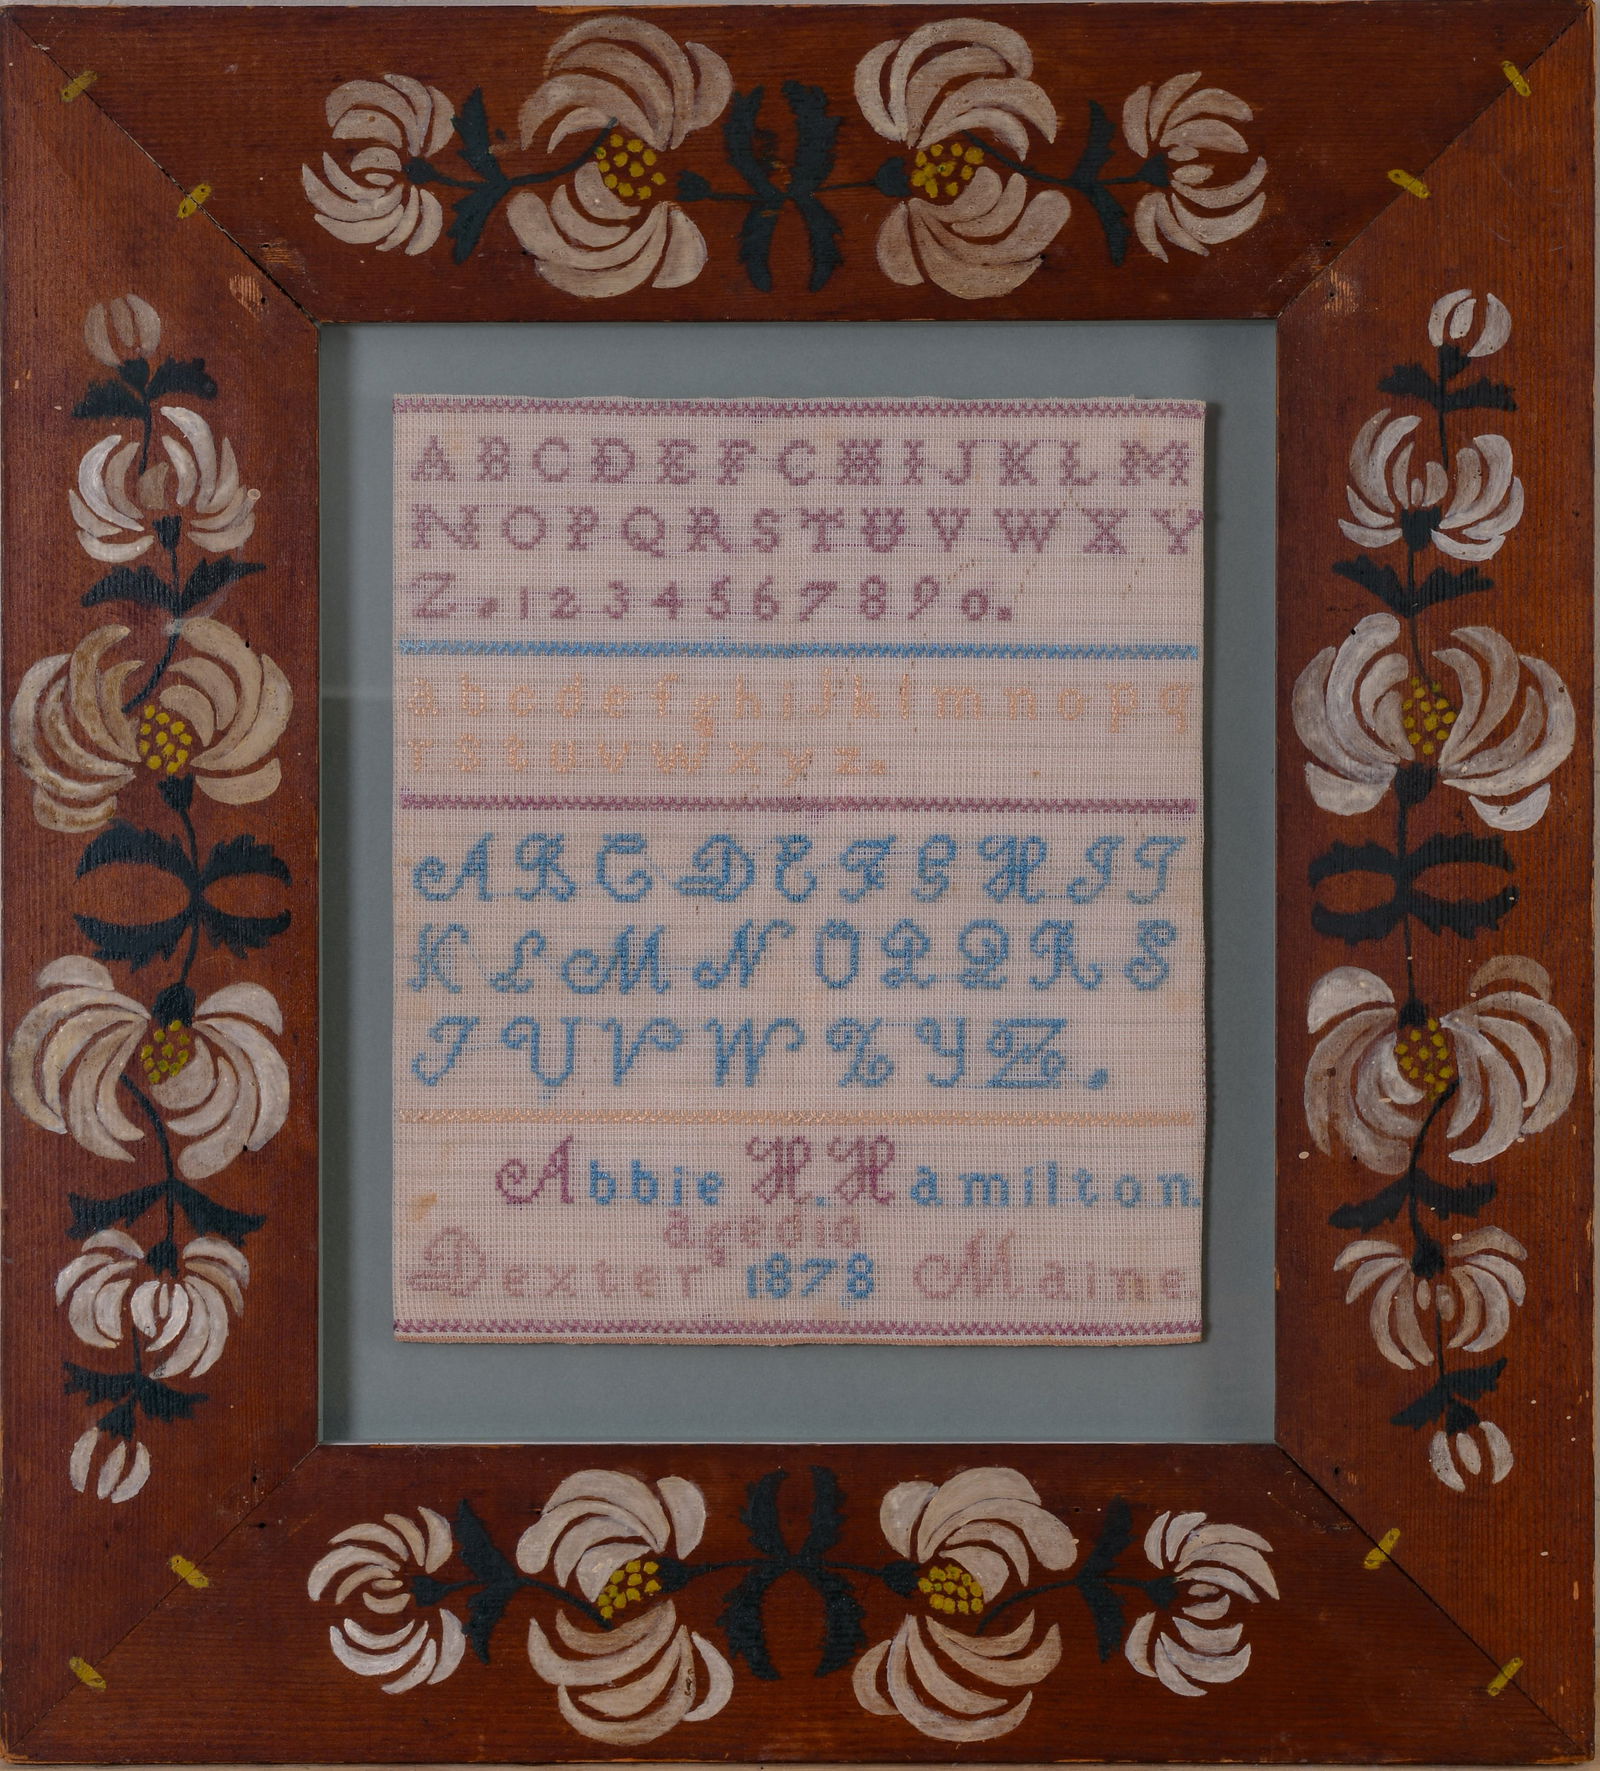 A B C D E F G H I J K L M
N O P Q R S T U V W X Y
Z . 1 2 3 4 5 6 7 8 9 0 .
a b c d e f g h i j k l m n o p q
r s t u v w x y z .
A B C D E F G H I J
K L M N O P Q R S
T U V W X Y Z .
Abbie H. Hamilton
aged 10
Dexter 1878 Maine